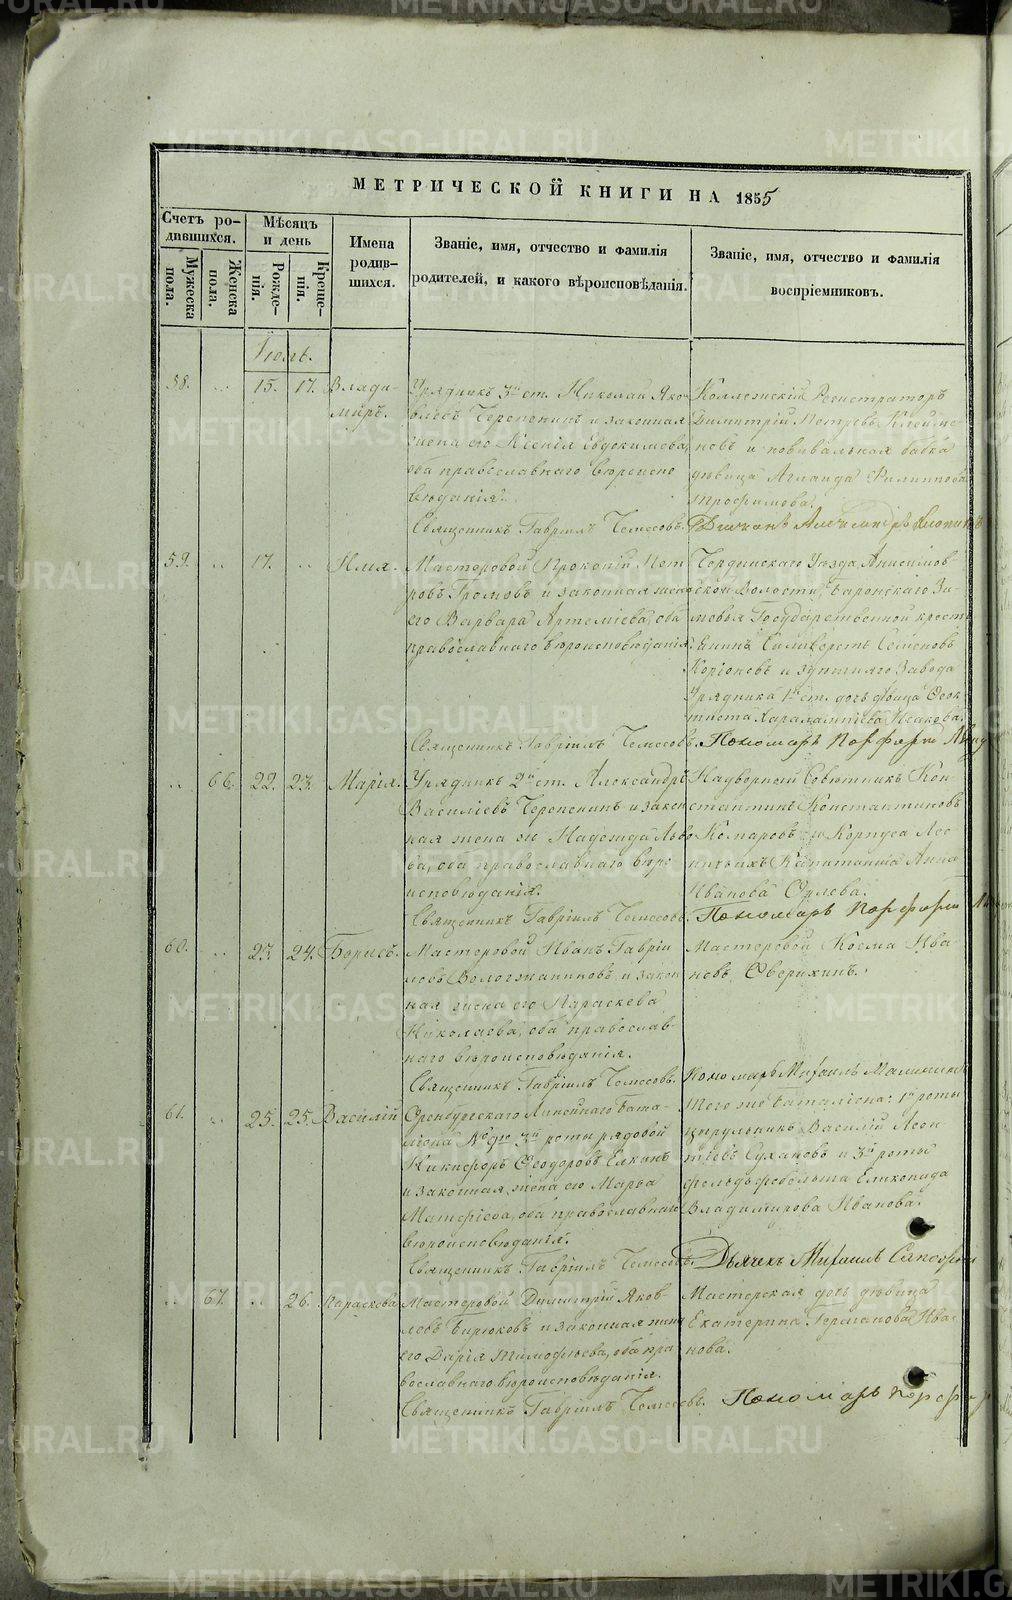 МЕТРИЧЕСКОЙ КНИГИ НА 1855
Счетъ ро-
дившихся.
Мужеска
пола.
Женска
пола.
Мѣсяцъ
и день
Рожде-
нія.
Креще-
нія.
Имена
родив-
шихся.
Званіе, имя, отчество и фамилія
родителей, и какого вѣроисповѣданія.
Званіе, имя, отчество и фамилія
воспріемниковъ.
Іюль.
58. 15. 17. Влади-
миръ.
Урядникъ 3й ст. Николай Яко-
влевъ Черепенинъ и законная
жена его Ксенія Евдокимова,
оба православнаго вѣроиспо
вѣданія.
Священникъ Гавріилъ Чемесовъ.
Коллежскій Регистраторъ
Димитрій Петровъ Клейме-
новъ и повивальная бабка
дѣвица Аглаида Филиппова
Трофимова.
59. 17. Илія.
Мастеровой Прокопій Пет
ровъ Громовъ и законная жена
его Варвара Артеміева, оба
православнаго вѣроисповѣданія.
Священникъ Гавріилъ Чемесовъ.
Уѣзда, Анисимов-
ской Волости,
Государственной крест
янинъ Семеновъ
и здѣшняго Завода
Урядника 1й ст. дочь дѣвица Ѳеок-
тиста Харалампіева Исакова.
Пономарь Порфирій
66. 22. 23. Марія.
Урядникъ 2й ст. Александръ
Василіевъ Черепенинъ и закон
ная жена его Надежда Льво
ва, оба православнаго вѣро
исповѣданія.
Священникъ Гавріилъ Чемесовъ.
Надворный Совѣтникъ Кон-
стантинъ Константиновъ
Комаровъ и Корпуса Лес
ничихъ Капитанша Анна
Иванова Орлова.
Пономарь Порфирій
60. 23. 24. Борисъ.
Мастеровой Иванъ Гаврі
ловъ Вологжаниновъ и закон
ная жена его Параскева
Николаева, оба православ-
наго вѣроисповѣданія.
Священникъ Гавріилъ Чемесовъ.
Мастеровой Косма Ива
новъ Сверихинъ.
Пономарь Михаилъ
61. 25. 25. Василій
Оренбургскаго Линейнаго Бата-
ліона 3й роты рядовой
Никифоръ Ѳеодоровъ Елкинъ
и законная жена его Марѳа
Матѳіева, оба православнаго
вѣроисповѣданія.
Священникъ Гавріилъ Чемесовъ.
Того же Баталіона: 1й роты
цирульникъ Василій Леон
тіевъ Сухановъ и 3й роты
фельдфебельша Еликонида
Владимірова Иванова.
Дьячекъ Михаилъ
67. 26. Параскева
Мастеровой Димитрій Яков
левъ Бирюковъ и законная жена
его Дарія Тимофѣева, оба пра
вославнаго вѣроисповѣданія.
Священникъ Гавріилъ Чемесовъ.
Мастерская дочь дѣвица
Екатерина Германова Ива-
нова.
Пономарь Порфир
METRIKI.GASO-URAL.RU